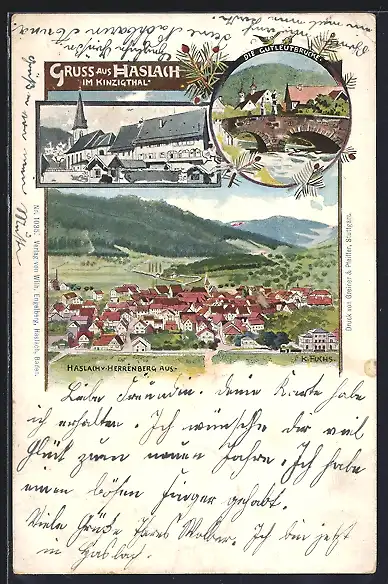 GRUSS AUS HASLACH
IM KINZIGTHAL-
DIE GUTLEUTBRÜCKE
No. 1086. Verlag von Wilh. Engelberg, Haslach, Baden.
Druck von Greiner & Pfeiffer, Stuttgart.
HASLACH V. HERRENBERG AUS-
K. FUCHS-
Liebe Freundin. deine Karte habe
ich erhalten. Ich wünsche dir viel
Glück zum neuen Jahre. Ich habe
einen bösen Finger gehabt.
Viele Grüße Ich bin jetzt
in Haslach.